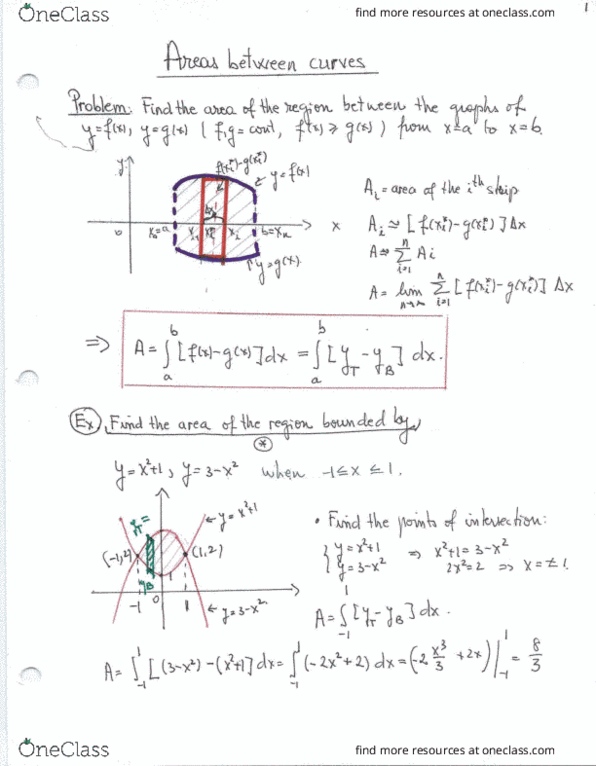 OneClass
find more resources at oneclass.com
1
Areas between curves
Problem: Find the area of the region between the graphs of
y=f(x), y=g(x) (f,g=cont, f(x)≥g(x)) from x=a to x=b.
y
f(xᵢ*)-g(xᵢ*)
y=f(x)
Δx
0
x₀=a
xᵢ₋₁
xᵢ*
xᵢ
b=xₙ
x
y=g(x)
Aᵢ=area of the iᵗʰ strip
Aᵢ≈[f(xᵢ*)-g(xᵢ*)]Δx
A≈∑ᵢ₌₁ⁿ Aᵢ
A=lim n→∞ ∑ᵢ₌₁ⁿ [f(xᵢ*)-g(xᵢ*)] Δx
⇒ A=∫ₐᵇ[f(x)-g(x)]dx=∫ₐᵇ[y_T-y_B] dx.
Ex Find the area of the region bounded by
*
y=x²+1, y=3-x² when -1≤x≤1.
y_T=
y=x²+1
(-1,2)
(1,2)
1
y_B
-1
0
1
y=3-x²
• Find the points of intersection:
{y=x²+1 ⇒ x²+1=3-x²
y=3-x² 2x²=2 ⇒ x=±1.
A=∫₋₁¹[y_T-y_B]dx.
A=∫₋₁¹[(3-x²)-(x²+1]dx=∫₋₁¹(-2x²+2)dx=(-2x³/3+2x)|₋₁¹=8/3
OneClass
find more resources at oneclass.com